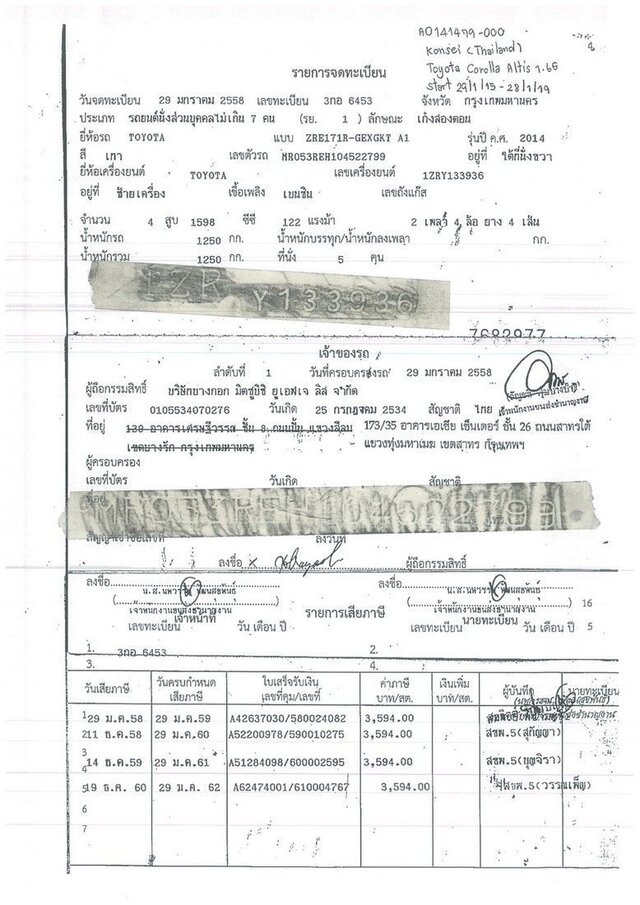 A0141479-000
Konsei (Thailand)
Toyota Corolla Altis 1.6G
Start 29/1/15 - 28/1/19
รายการจดทะเบียน
วันจดทะเบียน 29 มกราคม 2558 เลขทะเบียน 3กอ 6453 จังหวัด กรุงเทพมหานคร
ประเภท รถยนต์นั่งส่วนบุคคลไม่เกิน 7 คน (รย. 1 ) ลักษณะ เก๋งสองตอน
ยี่ห้อรถ TOYOTA แบบ ZRE171R-GEXGKT A1 รุ่นปี ค.ศ. 2014
สี เทา เลขตัวรถ MR053REH104522799 อยู่ที่ ใต้ที่นั่งขวา
ยี่ห้อเครื่องยนต์ TOYOTA เลขเครื่องยนต์ 1ZRY133936
อยู่ที่ ซ้ายเครื่อง เชื้อเพลิง เบนซิน เลขถังแก๊ส
จำนวน 4 สูบ 1598 ซีซี 122 แรงม้า 2 เพลา 4 ล้อ ยาง 4 เส้น
น้ำหนักรถ 1250 กก. น้ำหนักบรรทุก/น้ำหนักลงเพลา กก.
น้ำหนักรวม 1250 กก. ที่นั่ง 5 คน
1ZR Y133936
7682977
เจ้าของรถ
ลำดับที่ 1 วันที่ครอบครองรถ 29 มกราคม 2558
ผู้ถือกรรมสิทธิ์ บริษัทบางกอก มิตซูบิชิ ยูเอฟเจ ลิส จำกัด
เจ้าพนักงานขนส่งชำนาญงาน
เลขที่บัตร 0105534070276 วันเกิด 25 กรกฎาคม 2534 สัญชาติ ไทย
ที่อยู่ 139 อาคารเศรษฐีวรรณ ชั้น 8 ถนนปั้น แขวงสีลม 173/35 อาคารเอเชีย เซ็นเตอร์ ชั้น 26 ถนนสาทรใต้
เขตบางรัก กรุงเทพมหานคร แขวงทุ่งมหาเมฆ เขตสาทร กรุงเทพฯ
ผู้ครอบครอง
เลขที่บัตร วันเกิด สัญชาติ
ที่อยู่
สัญญาเช่าซื้อเลขที่ ลงวันที่
ลงชื่อ X ผู้ถือกรรมสิทธิ์
ลงชื่อ ลงชื่อ
เจ้าพนักงานขนส่งชำนาญงาน เจ้าพนักงานขนส่งชำนาญงาน 16
เจ้าหน้าที่ รายการเสียภาษี นายทะเบียน
เลขทะเบียน วัน เดือน ปี เลขทะเบียน วัน เดือน ปี 5
1. 3กอ 6453 2.
3. 4.
วันเสียภาษี วันครบกำหนดเสียภาษี ใบเสร็จรับเงิน เลขที่คุม/เลขที่ ค่าภาษี บาท/สต. เงินเพิ่ม บาท/สต. ผู้บันทึก นายทะเบียน
1 29 ม.ค.58 29 ม.ค.59 A42637030/580024082 3,594.00
2 11 ธ.ค.58 29 ม.ค.60 A52200978/590010275 3,594.00 สขพ.5(สุกัญญา)
3
4 14 ธ.ค.59 29 ม.ค.61 A51284098/600002595 3,594.00 สขพ.5(บุญจิรา)
5 19 ธ.ค. 60 29 ม.ค. 62 A62474001/610004767 3,594.00 สขพ.5(วรรณเพ็ญ)
6
7